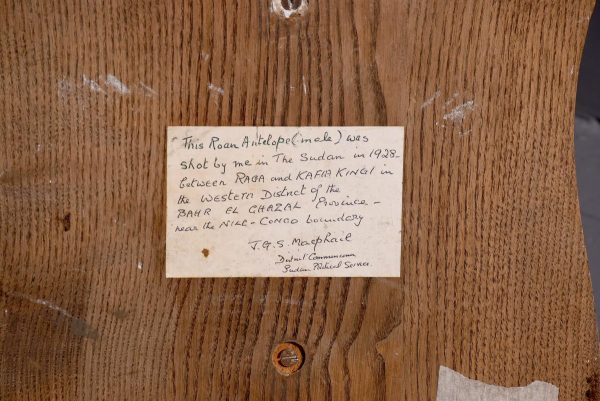 This Roan Antelope (male) was
shot by me in The Sudan in 1928-
between RAGA and KAFIA KINGI in
the Western District of the
BAHR EL GHAZAL Province -
near the NILE-CONGO boundary
J.G.S. Macphail
District Commissioner
Sudan Political Service.